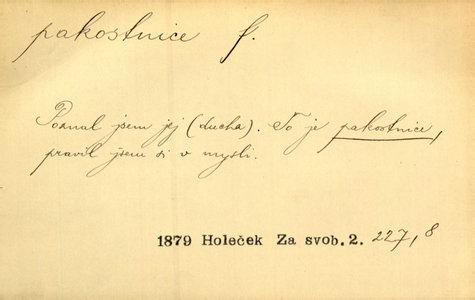 pakostnice f.
Poznal jsem jej (ducha). To je pakostnice,
pravil jsem si v mysli.
1879 Holeček Za svob. 2. 227,8